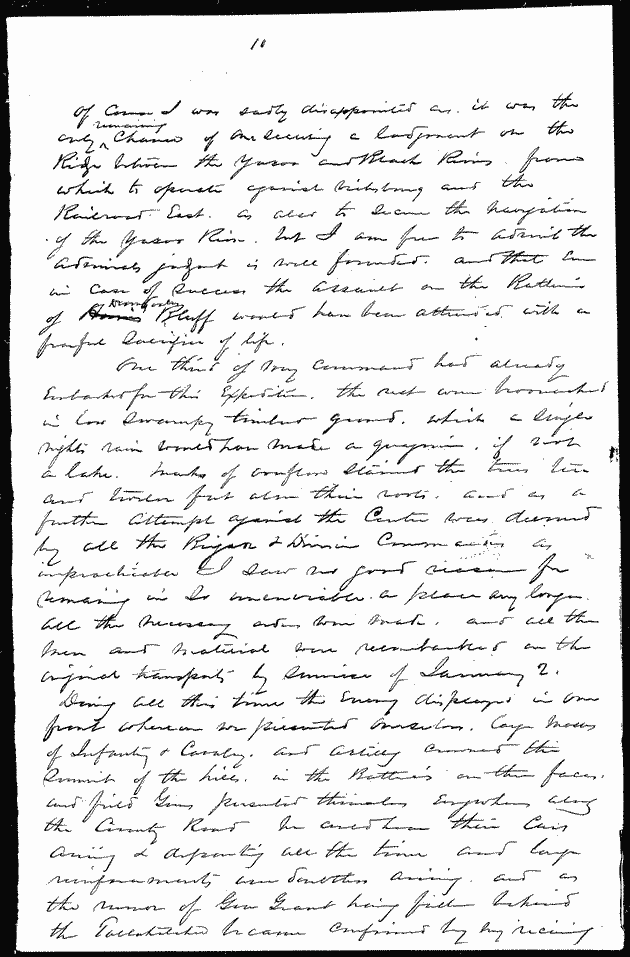 10
of course I was sadly disappointed as it was the
remaining
only chance of our securing a lodgment on the
Ridge between the Yazoo and Black Rivers from
which to operate against Vicksburg and the
Railroad East. as also to secure the navigation
of the Yazoo River. but I am free to admit the
Admirals judgmt is well founded. and that even
in case of success the assault on the Batteries
Drumgoulds
of Bluff would have been attended with a
fearful sacrifice of life.
One third of my command had already
Embarked for this Expedition. the rest were bivouacked
in low swampy timber ground. which a single
nights rain would have made a quagmire. if not
a lake. marks of overflow stained the trees ten
and twelve feet above their roots. and as a
further attempt against the Center was deemed
by all the Brigade & Division Commanders as
impracticable I saw no good reason for
remaining in so unenviable a place any longer.
all the necessary orders were made. and all the
men and material were reembarked on the
original transports by sunrise of January 2.
During all this time the Enemy displayed in our
front wherever we presented ourselves. large masses
of Infantry & Cavalry. and artillery crowned the
summit of the hills. in the Batteries on their faces.
and field Guns presented themselves Everywhere along
the County Road We could hear their Cars
arriving & departing all the time and large
reinforcements were doubtless arriving. and as
the rumor of Gen Grant having fallen behind
the Tallahatchie became confirmed by my receiving